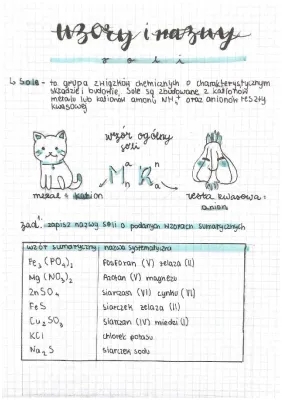 wzory i nazwy
soli
↳ Sole - to grupa związków chemicznych o charakterystycznym
układzie i budowie. Sole są zbudowane z kationów
metalu lub kationów amonu NH₄⁺ oraz anionów reszty
kwasowej
wzór ogólny
soli
M R
metal = kation
reszta kwasowa =
anion
zad 1. zapisz nazwy soli o podanych wzorach sumarycznych
wzór sumaryczny nazwa systematyczna
Fe₃(PO₄)₂ fosforan (V) żelaza (II)
Mg(NO₃)₂ Azotan (V) magnezu
ZnSO₄ siarczan (VI) cynku (VI)
FeS siarczek żelaza (II)
Cu₂SO₃ siarczan (IV) miedzi (I)
KCl chlorek potasu
Na₂S siarczek sodu